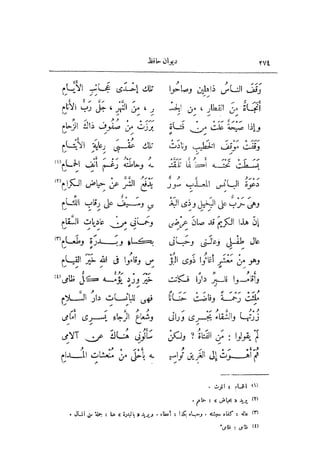 ٢٧٤ ديوان حافظ
وقف الناس ذاهلين وصاحوا تلك إحدى عجائب الأيام
أنجاة من القطار، من الجسر، من النهر، جل رب الأنام
وإذا صيحة علت من فتاة برزت من صفوف ذاك الزحام
وقفت موقف الخطيب ونادت تلك عقبى رعاية الأيتام
بسطت تحته أكفًّا تلقتـ ـه وحاطته رغم أنف الحمام (١)
دعوة البائس المعذب سور يدفع الشر عن حياض الكرام (٢)
وهى حرب على البخيل وذى البغـ ـى وسيف على رقاب اللئام
إن هذا الكريم قد صان عرضى وحمانى من عاديات السقام
عال طفلى وعالنى وحبانى بكساء وبدرة وطعام (٣)
وهو من معشر أغاثوا ذوى البؤ س وقاموا فى الله خير القيام
وأقاموا للبر دارًا فكانت خير ورد يؤمه كل ظامى (٤)
ملئت رحمة وفاضت حنانا فهى للبائسات دار السلام
زرتها والشقاء يجرى ورائى وشعاع الرجاء يسرى أمامى
لم يقولوا: من الفتاة؟ ولكن سألونى هناك عن آلامى
ثم أهوت إلى الغريق تواسيـ ـه بأحلى من منعشات المدام
(١) الحمام: الموت.
(٢) يريد «بالحياض»: حماهم.
(٣) عاله: كفاه معيشته. وحباه بكذا: أعطاه. ويريد «بالبدرة» هنا: جملة من المال.
(٤) ظامى: ظامئ.